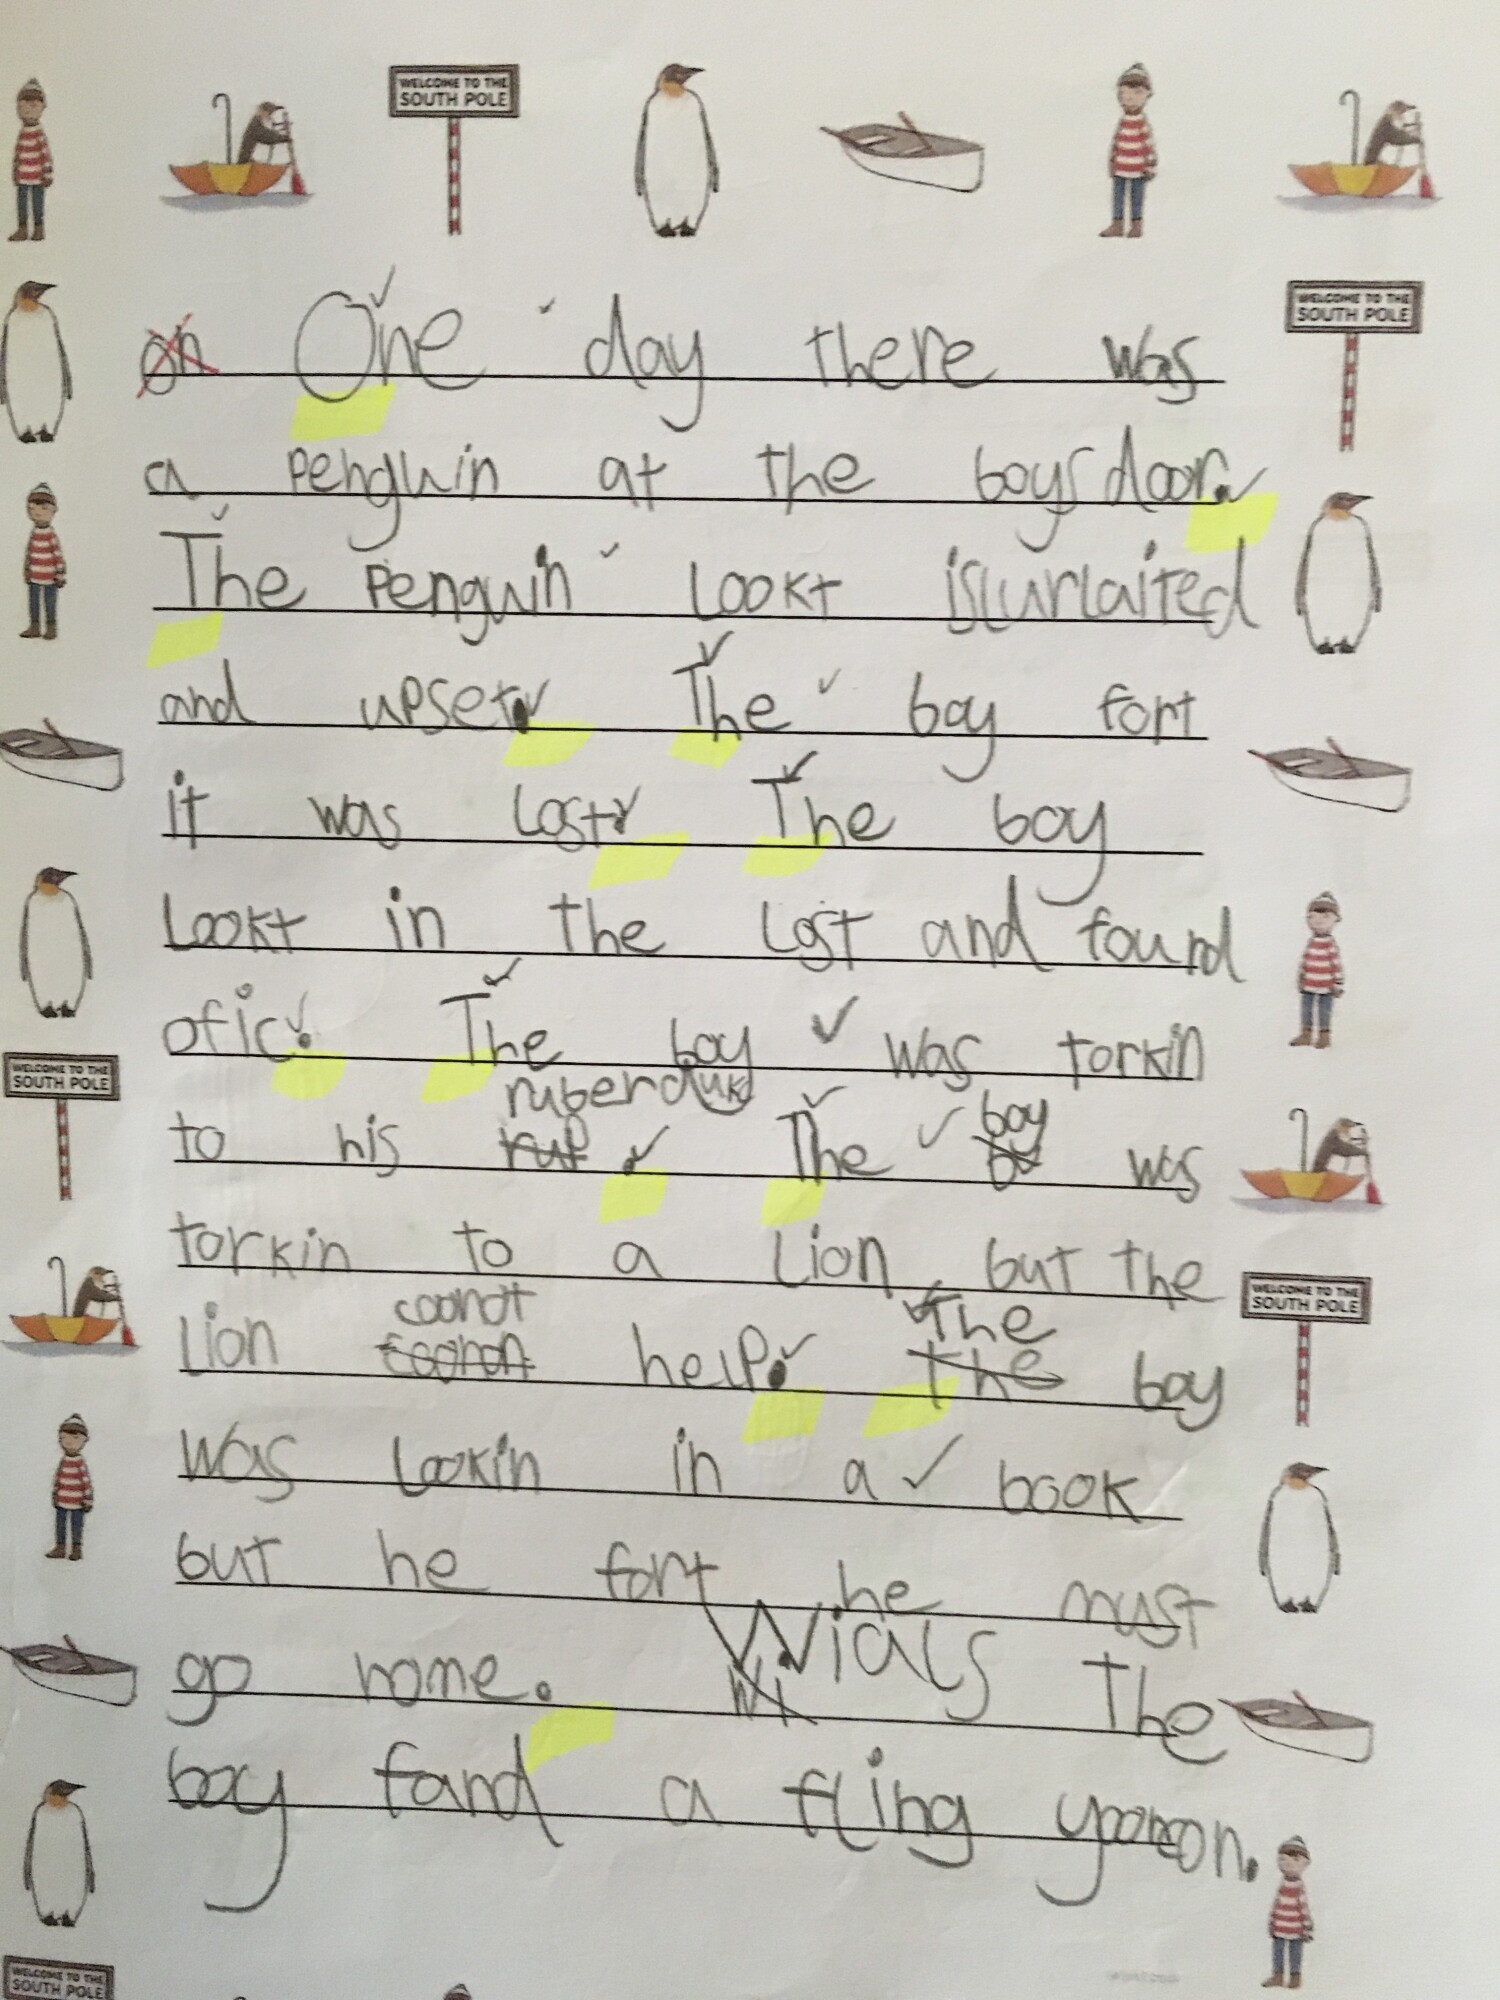 WELCOME TO THE
SOUTH POLE
WELCOME TO THE
SOUTH POLE
on One day there was
a penguin at the boys door.
The Penguin lookt islurlaited
and upset. The boy fort
it was lost. The boy
lookt in the lost and found
ofic. The boy was torkin
ruberduk
to his rup . The boy was
torkin to a lion but the
coonot The
lion coonon help. the boy
was lookin in a book
but he fort he must
go home. Wi Wials The
boy fand a fling yooreon.
WELCOME TO THE
SOUTH POLE
WELCOME TO THE
SOUTH POLE
WELCOME TO THE
SOUTH POLE